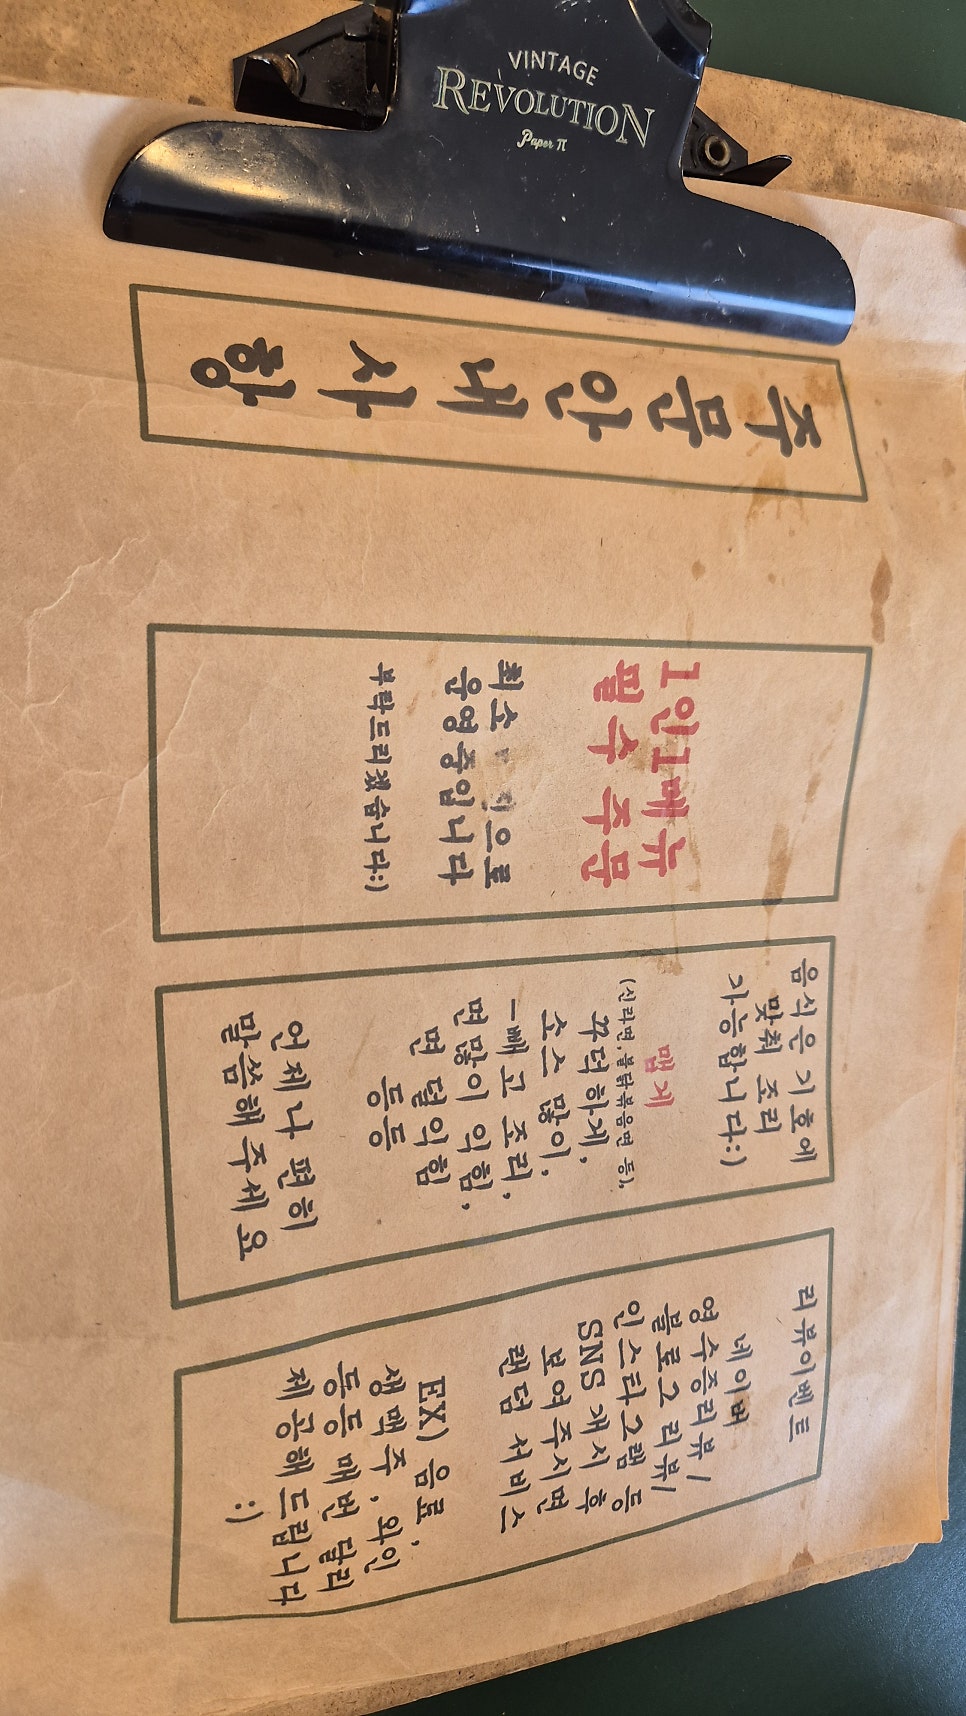 VINTAGE
REVOLUTION
Paper π
주문안내사항
1인1메뉴
필수 주문
최소 으로
운영중입니다
부탁드리겠습니다:)
음식은 기호에
맞춰 조리
가능합니다:)
맵게
(신라면.불닭볶음면 등).
꾸덕하게.
소스 많이.
-빼고 조리.
면많이 익힘.
면 덜익힘
등등
언제나 편히
말씀해주세요
리뷰이벤트
네이버
영수증리뷰/
블로그 리뷰/
인스타그램 등
SNS 게시 후
보여주시면
랜덤 서비스
EX) 음료.
생맥주. 와인
등등 매번 달리
제공해드립니다
:)